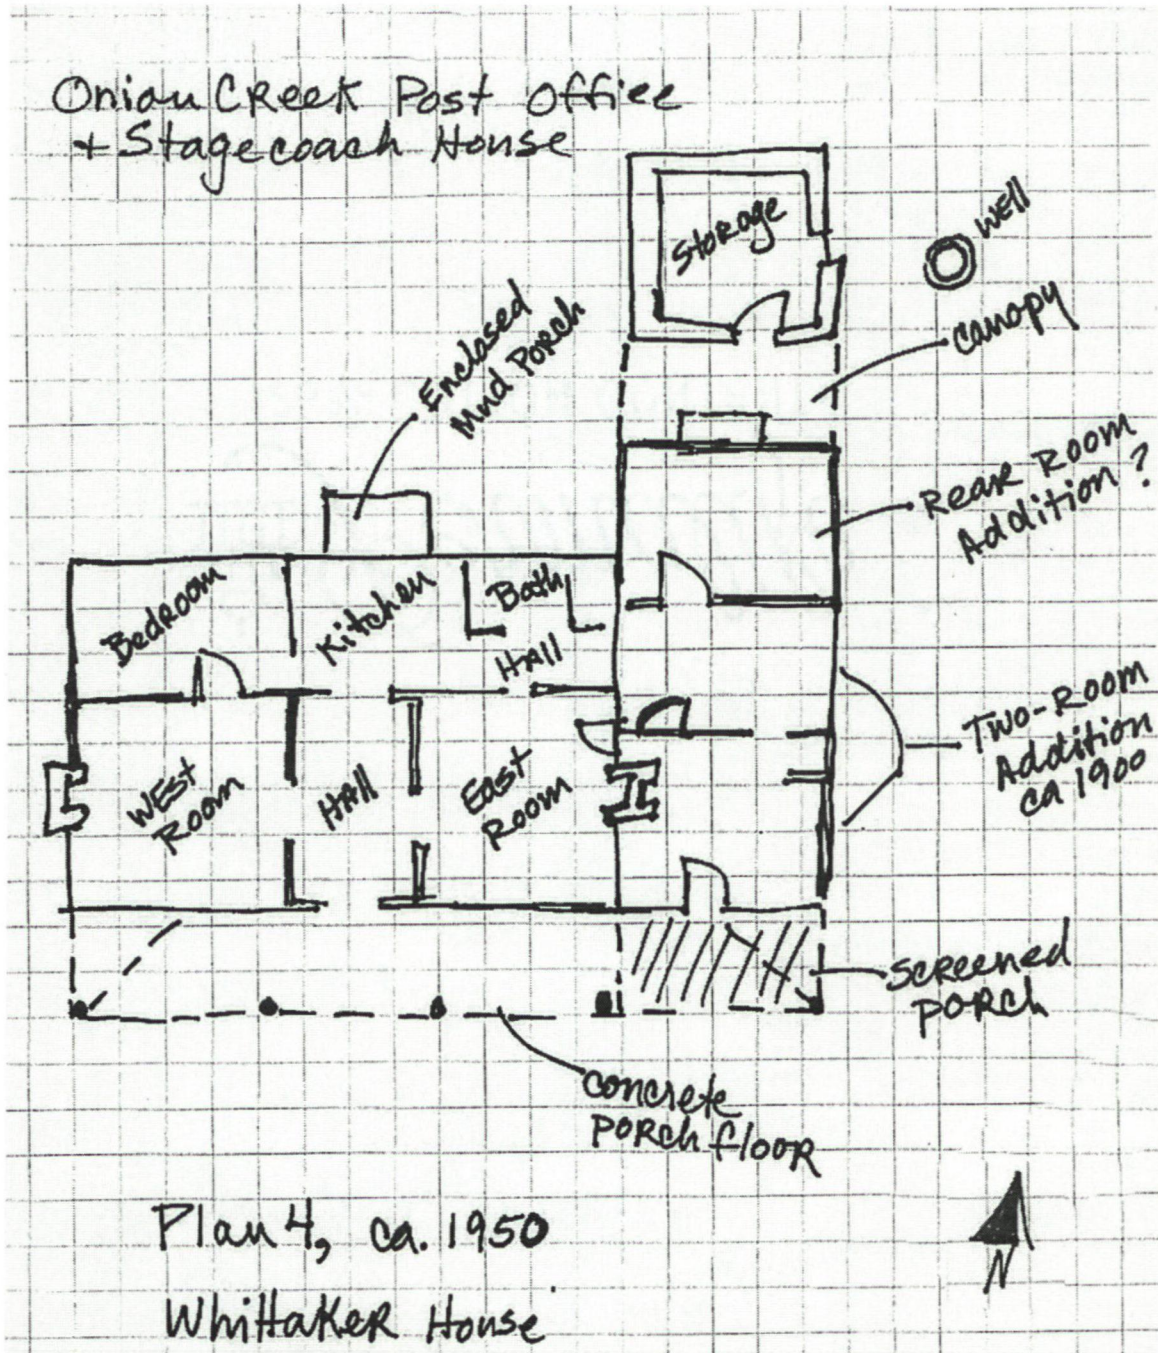 Onion Creek Post Office
+ Stagecoach House
Storage
Well
Canopy
Enclosed
Mud Porch
Rear Room
Addition?
Bedroom
Kitchen
Bath
Hall
Two-Room
Addition
ca 1900
West
Room
Hall
East
Room
Screened
Porch
Concrete
Porch floor
Plan 4, ca. 1950
Whittaker House
N